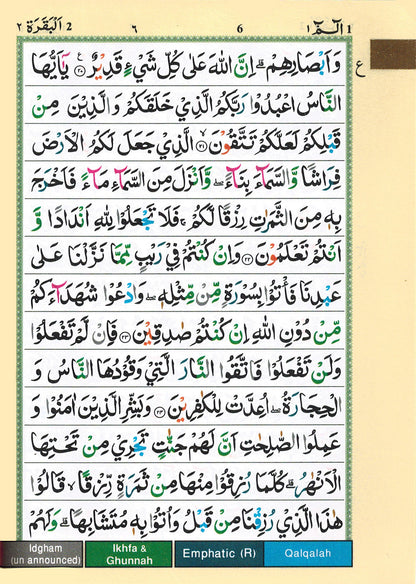 الٓمّٓ ١ 1 6 ٦ 2 اَلْبَقَرَة ٢
وَاَبْصَارِهِمْ ؕ اِنَّ اللّٰهَ عَلٰى كُلِّ شَيْءٍ قَدِيْرٌ ﴿٢٠﴾ يٰۤاَيُّهَا
ع
النَّاسُ اعْبُدُوْا رَبَّكُمُ الَّذِيْ خَلَقَكُمْ وَالَّذِيْنَ مِنْ
قَبْلِكُمْ لَعَلَّكُمْ تَتَّقُوْنَ ﴿٢١﴾ الَّذِيْ جَعَلَ لَكُمُ الْاَرْضَ
فِرَاشًا وَّالسَّمَآءَ بِنَآءً ۪ وَّاَنْزَلَ مِنَ السَّمَآءِ مَآءً فَاَخْرَجَ
بِهٖ مِنَ الثَّمَرٰتِ رِزْقًا لَّكُمْ ۚ فَلَا تَجْعَلُوْا لِلّٰهِ اَنْدَادًا وَّ
اَنْتُمْ تَعْلَمُوْنَ ﴿٢٢﴾ وَاِنْ كُنْتُمْ فِيْ رَيْبٍ مِّمَّا نَزَّلْنَا عَلٰى
عَبْدِنَا فَاْتُوْا بِسُوْرَةٍ مِّنْ مِّثْلِهٖ ۪ وَادْعُوْا شُهَدَآءَكُمْ
مِّنْ دُوْنِ اللّٰهِ اِنْ كُنْتُمْ صٰدِقِيْنَ ﴿٢٣﴾ فَاِنْ لَّمْ تَفْعَلُوْا
وَلَنْ تَفْعَلُوْا فَاتَّقُوا النَّارَ الَّتِيْ وَقُوْدُهَا النَّاسُ وَ
الْحِجَارَةُ ۖ اُعِدَّتْ لِلْكٰفِرِيْنَ ﴿٢٤﴾ وَبَشِّرِ الَّذِيْنَ اٰمَنُوْا وَ
عَمِلُوا الصّٰلِحٰتِ اَنَّ لَهُمْ جَنّٰتٍ تَجْرِيْ مِنْ تَحْتِهَا
الْاَنْهٰرُ ؕ كُلَّمَا رُزِقُوْا مِنْهَا مِنْ ثَمَرَةٍ رِّزْقًا ۙ قَالُوْا
هٰذَا الَّذِيْ رُزِقْنَا مِنْ قَبْلُ وَاُتُوْا بِهٖ مُتَشَابِهًا ؕ وَلَهُمْ
Idgham (un announced) Ikhfa & Ghunnah Emphatic (R) Qalqalah